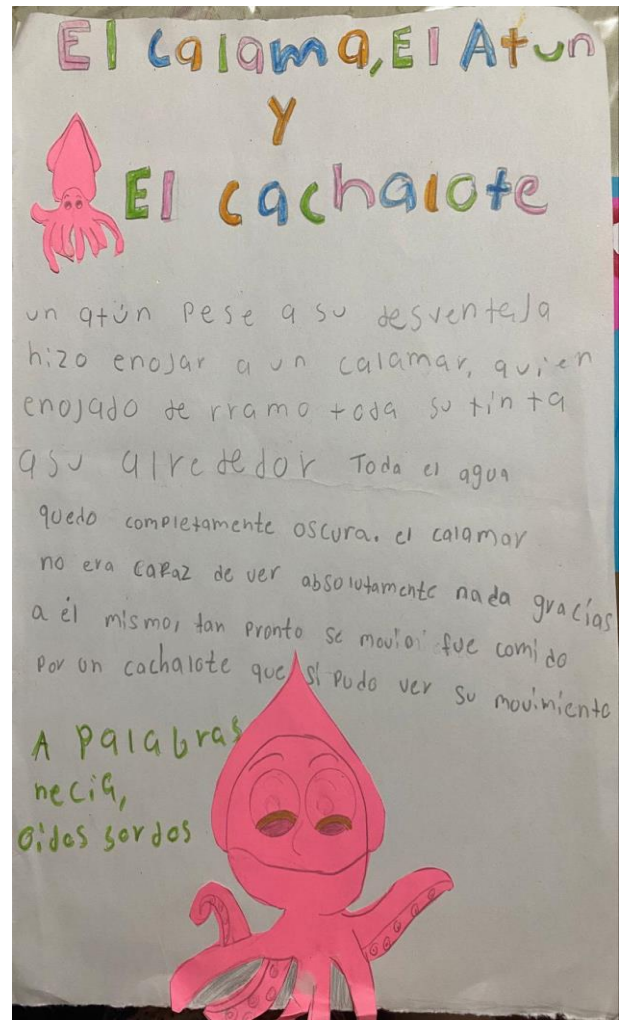 El calama, El Atun
Y
El cachalote
un atún Pese a su desventaja
hizo enojar a un calamar, quien
enojado de rramo toda su tinta
asu alrededor Toda el agua
quedo completamente oscura. el calamar
no era capaz de ver absolutamente nada gracias
a él mismo, tan pronto se movió fue comido
por un cachalote que si pudo ver su movimiento
A palabras
necia,
oidos sordos